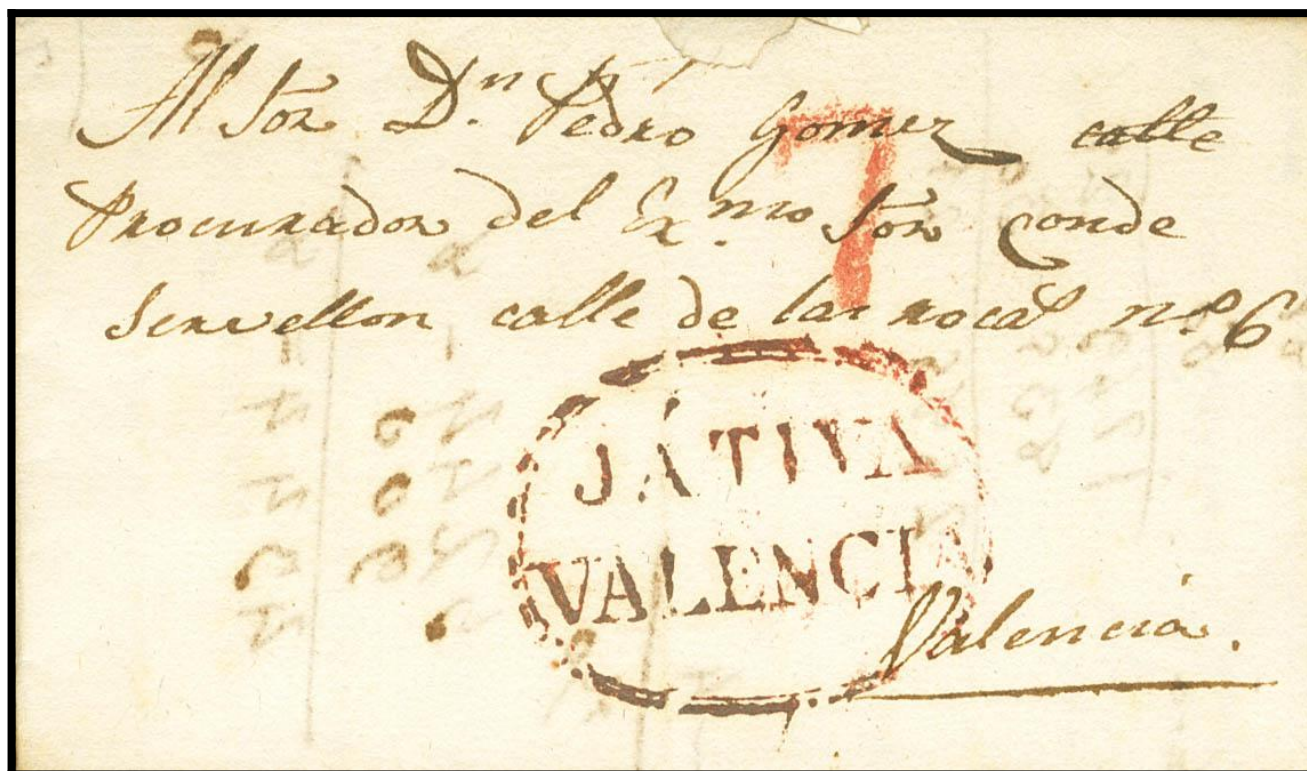 Al Sor Dn Pedro Gomez calle
Procurador del Ex.mo Sor Conde
Servellon calle de las rocas no. 6
7
JÁTIVA
VALENCIA
Valencia.